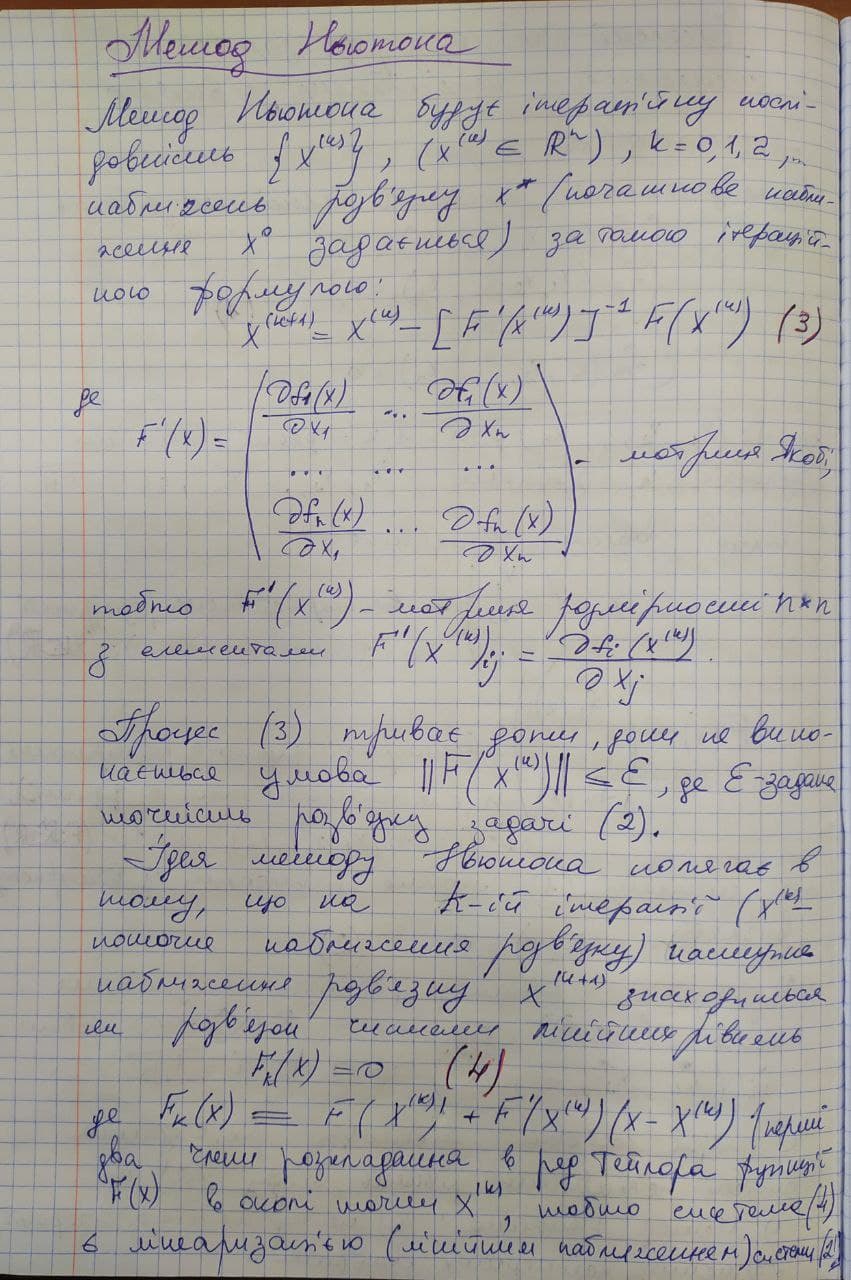 Метод Ньютона
Метод Ньютона будує ітераційну послі-
довність { x^(k) } , ( x^(k) ∈ ℝ^n ) , k = 0, 1, 2 , ...
наближень розв'язку x* (початкове набли-
ження x^0 задається) за
ітерацій-
ною формулою:
x^(k+1) = x^(k) - [ F'(x^(k)) ]^-1 F(x^(k)) (3)
де
F'(x) = ( ∂f1(x)/∂x1 ... ∂f1(x)/∂xn
... ... ...
∂fn(x)/∂x1 ... ∂fn(x)/∂xn ) - матриця Якобі,
тобто F'(x^(k)) - матриця розмірності n×n
з елементами F'(x^(k))ij = ∂fi(x^(k))/∂xj .
Процес (3) триває доти, доки не вико-
нається умова ||F(x^(k))|| ≤ ε, де ε-задана
точність розв'язку задачі (2).
Ідея методу Ньютона полягає в
тому, що на k-ій ітерації (x^(k) -
поточне наближення розв'язку) наступне
наближення розв'язку x^(k+1) знаходиться
як розв'язок системи лінійних рівнянь
Fk(x) = 0 (4)
де Fk(x) ≡ F(x^(k)) + F'(x^(k))(x - x^(k)) (перші
два члени розкладання в ряд Тейлора функції
F(x) в околі точки x^(k), тобто система (4)
є лінеаризацією (лінійним наближенням) системи (2)